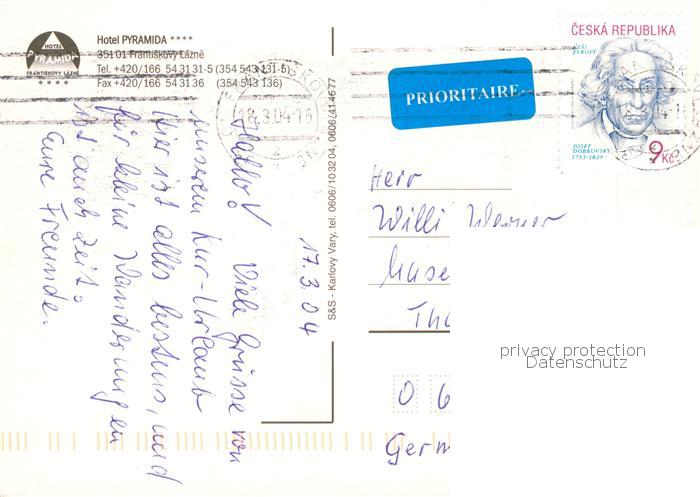 HOTEL
PYRAMIDA
FRANTIŠKOVY LÁZNĚ
****
Hotel PYRAMIDA ****
351 01 Františkovy Lázně
Tel. +420/166 54 31 31-5 (354 543 131-5)
Fax +420/166 54 31 36 (354 543 136)
18.3.04-16
17.3.04
Hallo! Viele Grüsse von
unserem Kur-Urlaub
Hier ist alles bestens, und
für kleine Wanderungen
ist auch Zeit.
Eure Freunde.
S&S - Karlovy Vary, tel. 0606/10 32 04, 0606/41 46 77
PRIORITAIRE
ČESKÁ REPUBLIKA
ČEŠI
EVROPĚ
JOSEF
DOBROVSKÝ
1753-1829
9Kč
Herr
Willi Werner
Muse
Tho
0 6
Germ
privacy protection
Datenschutz